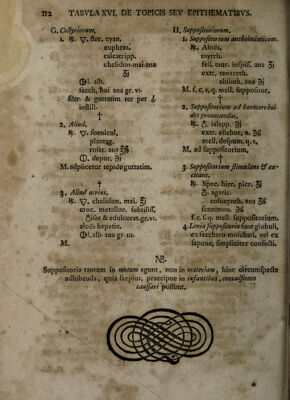 112 TABVLA XVI, DE TOPICIS SEV EPITHEMATIBVS.
G. Collyriorum,
1. ℞. 🜄. flor. cyan.
euphras.
calcatripp.
chelidon. mai. ana
℥i
alb.
sacch,
filtr. & guttatim ter per
instill.
†
2. Aliud.
℞. 🜄. foenicul,
plantag.
rosar. ana
depur. ℨi
M. adplicetur tepide guttatim.
†
3. Aliud acrius.
℞. 🜄. chelidon. mai. ℥i
croc. metallor. subtiliss,
& edulcorat. gr. vi.
aloës hepatic.
alb. ana gr. iii.
M.
H. Suppositoriorum.
1. Suppositorium anthelminticum.
℞. Aloës,
myrrh.
fell. taur. inspiss. ana ℨi
extr. tanaceth.
absinth. ana
M. f. c. s. q. mell. suppositor.
†
2. Suppositorium ad haemorrhoides provocandas,
℞. ialapp.
extr. ellebor. n.
mell. despum. q. s.
M. ad suppositorium,
†
3. Suppositorium stimulans & excitans.
℞. Spec. hier. picr. ℥i
agaric.
colocynth. ana
scammon.
f. c. s. q. mell. suppositorium.
4. Lenia suppositoria sunt globuli, ex saccharo moschati. vel ex sapone, simpliciter confecti.
NB.
Suppositoria tantum in motum agunt, non in materiam, hinc circumspecte
adhibenda, quia saepius, praecipue in infantibus, convulsiones
caussari possunt.